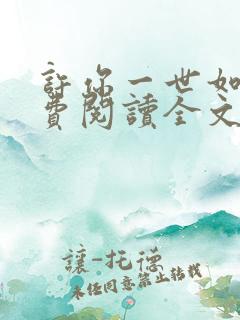 許你一世如
費閱讀全文
讓-托德
未经同意禁止转载